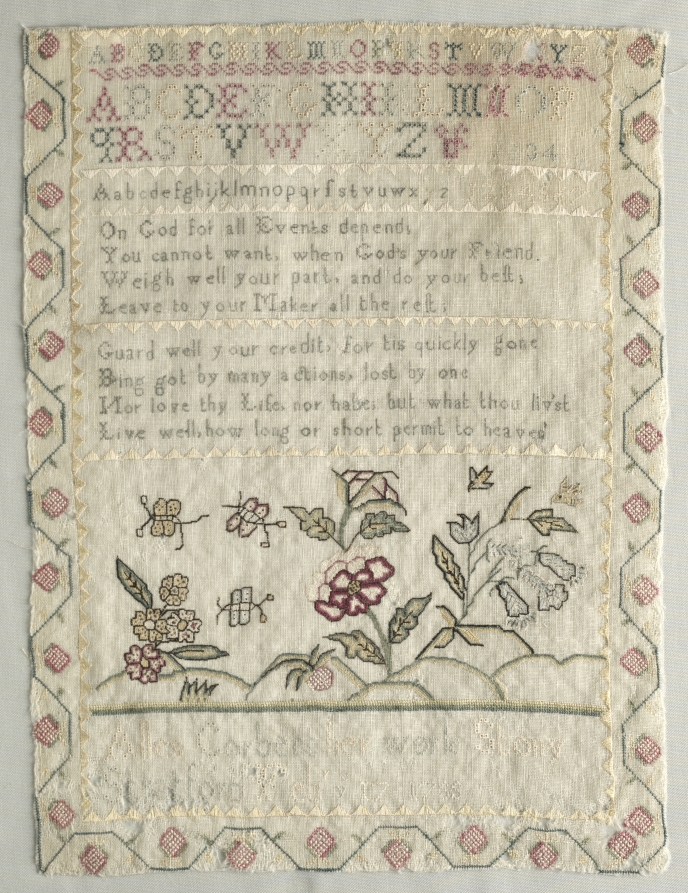 ABCDEFGHIKLMNOPQRST WXYZ
ABCDEFGHIKLMNOP
qRSTVWXYZ 34
Aabcdefghijklmnopqrſstvuwxyz
On God for all Events depend;
You cannot want, when God's your Friend.
Weigh well your part, and do your beſt;
Leave to your Maker all the reſt;
Guard well your credit, for tis quickly gone
Bing got by many actions, lost by one
Nor love thy Life, nor hate; but what thou liv'st
Live well, how long or short permit to heaven
work Stony
Stratford